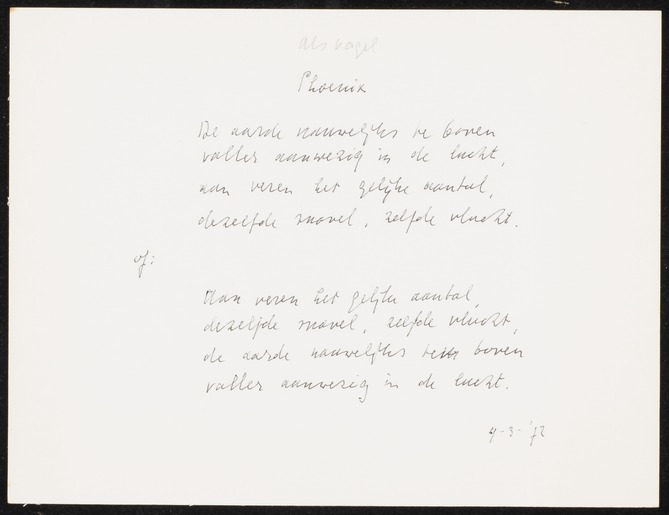 als vogel
Phoenix
De aarde nauwelijks te boven
voller aanwezig in de lucht,
aan veren het gelijke aantal,
dezelfde snavel, zelfde vlucht.
of:
Aan veren het gelijke aantal,
dezelfde snavel, zelfde vlucht,
de aarde nauwelijks te boven
voller aanwezig in de lucht.
4-3-'72